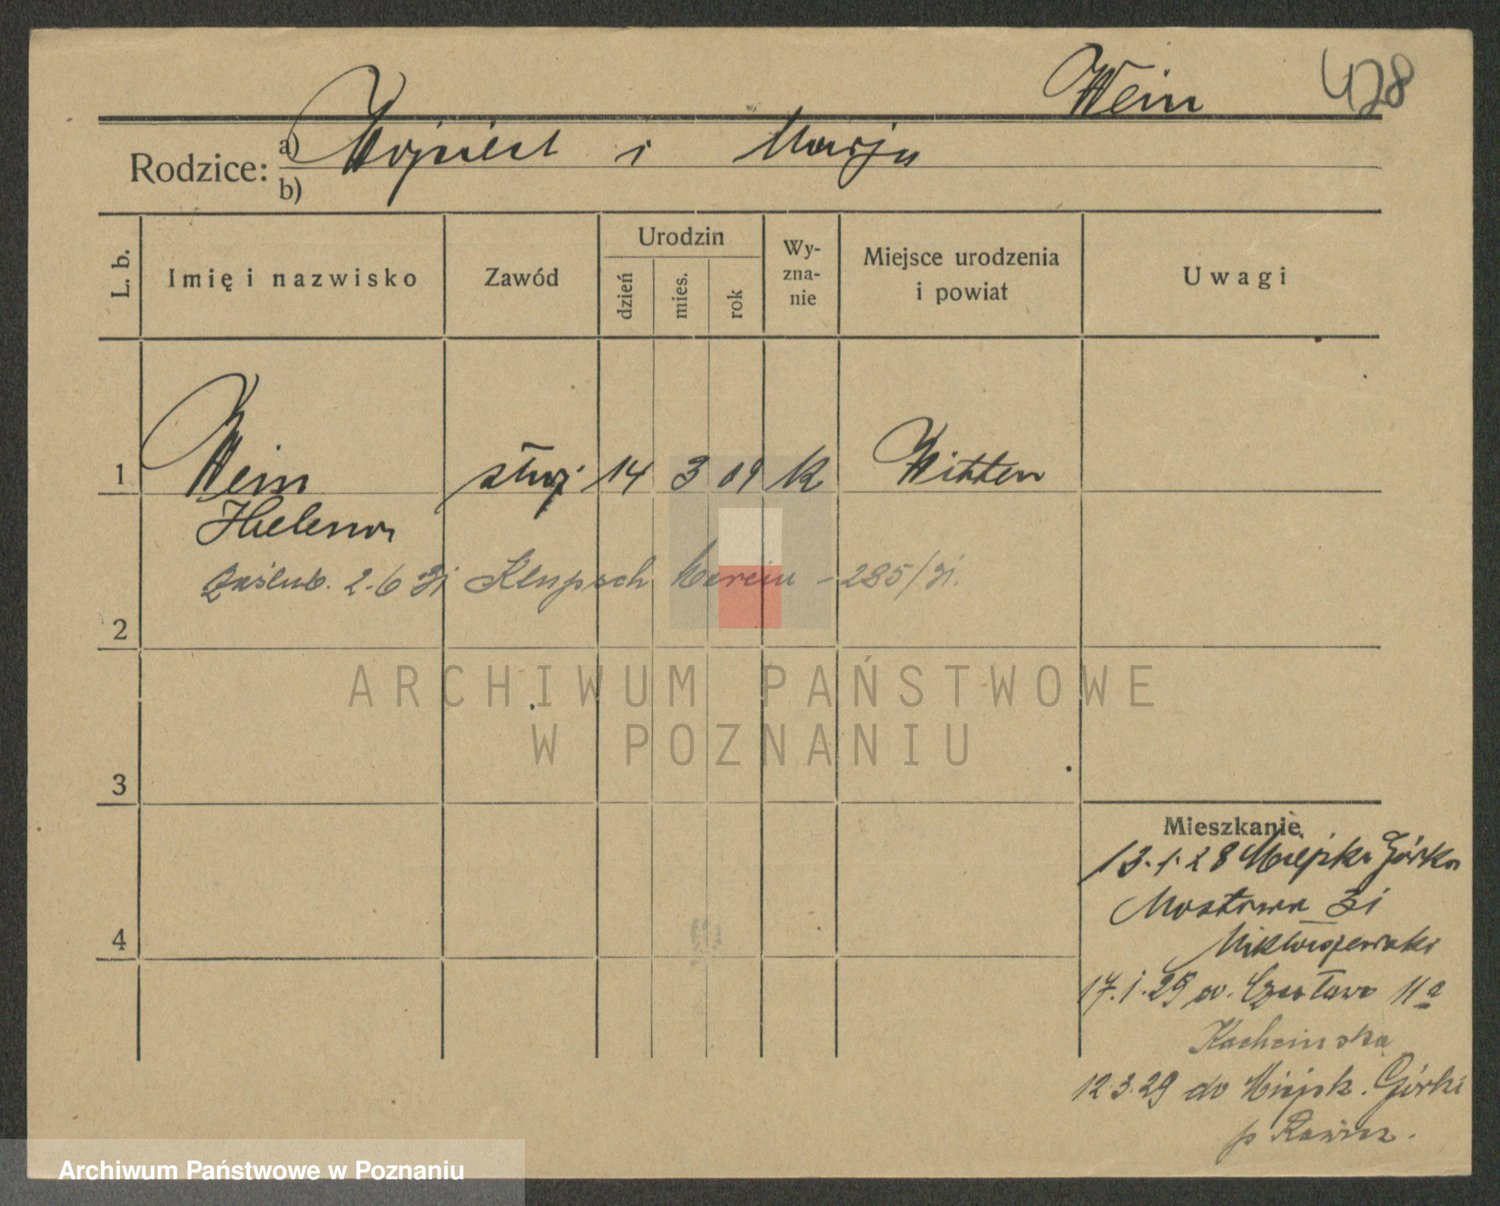 Wein 428
Rodzice: a) Wojciech i Marja
b)
L. b. Imię i nazwisko Zawód Urodzin dzień mies. rok Wyznanie Miejsce urodzenia i powiat Uwagi
1 Wein służ. 14 3 09 K Witten
Helena
Zaślub. 2.6 31 Klupsch Marcin - 285/31.
2
ARCHIWUM PAŃSTWOWE
W POZNANIU
3
Mieszkanie
13.1.28 Miejska Górka
Mostowa 31
4
17.1.29 św. Czesława 11a
12.3.29 do Miejsk. Górki
p Rawicz.
Archiwum Państwowe w Poznaniu